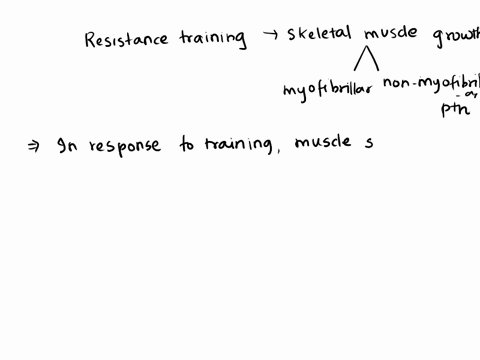 Resistance training → skeletal muscle growth
myofibrillar non-myofibril
-ar
ptn
⇒ In response to training, muscle s